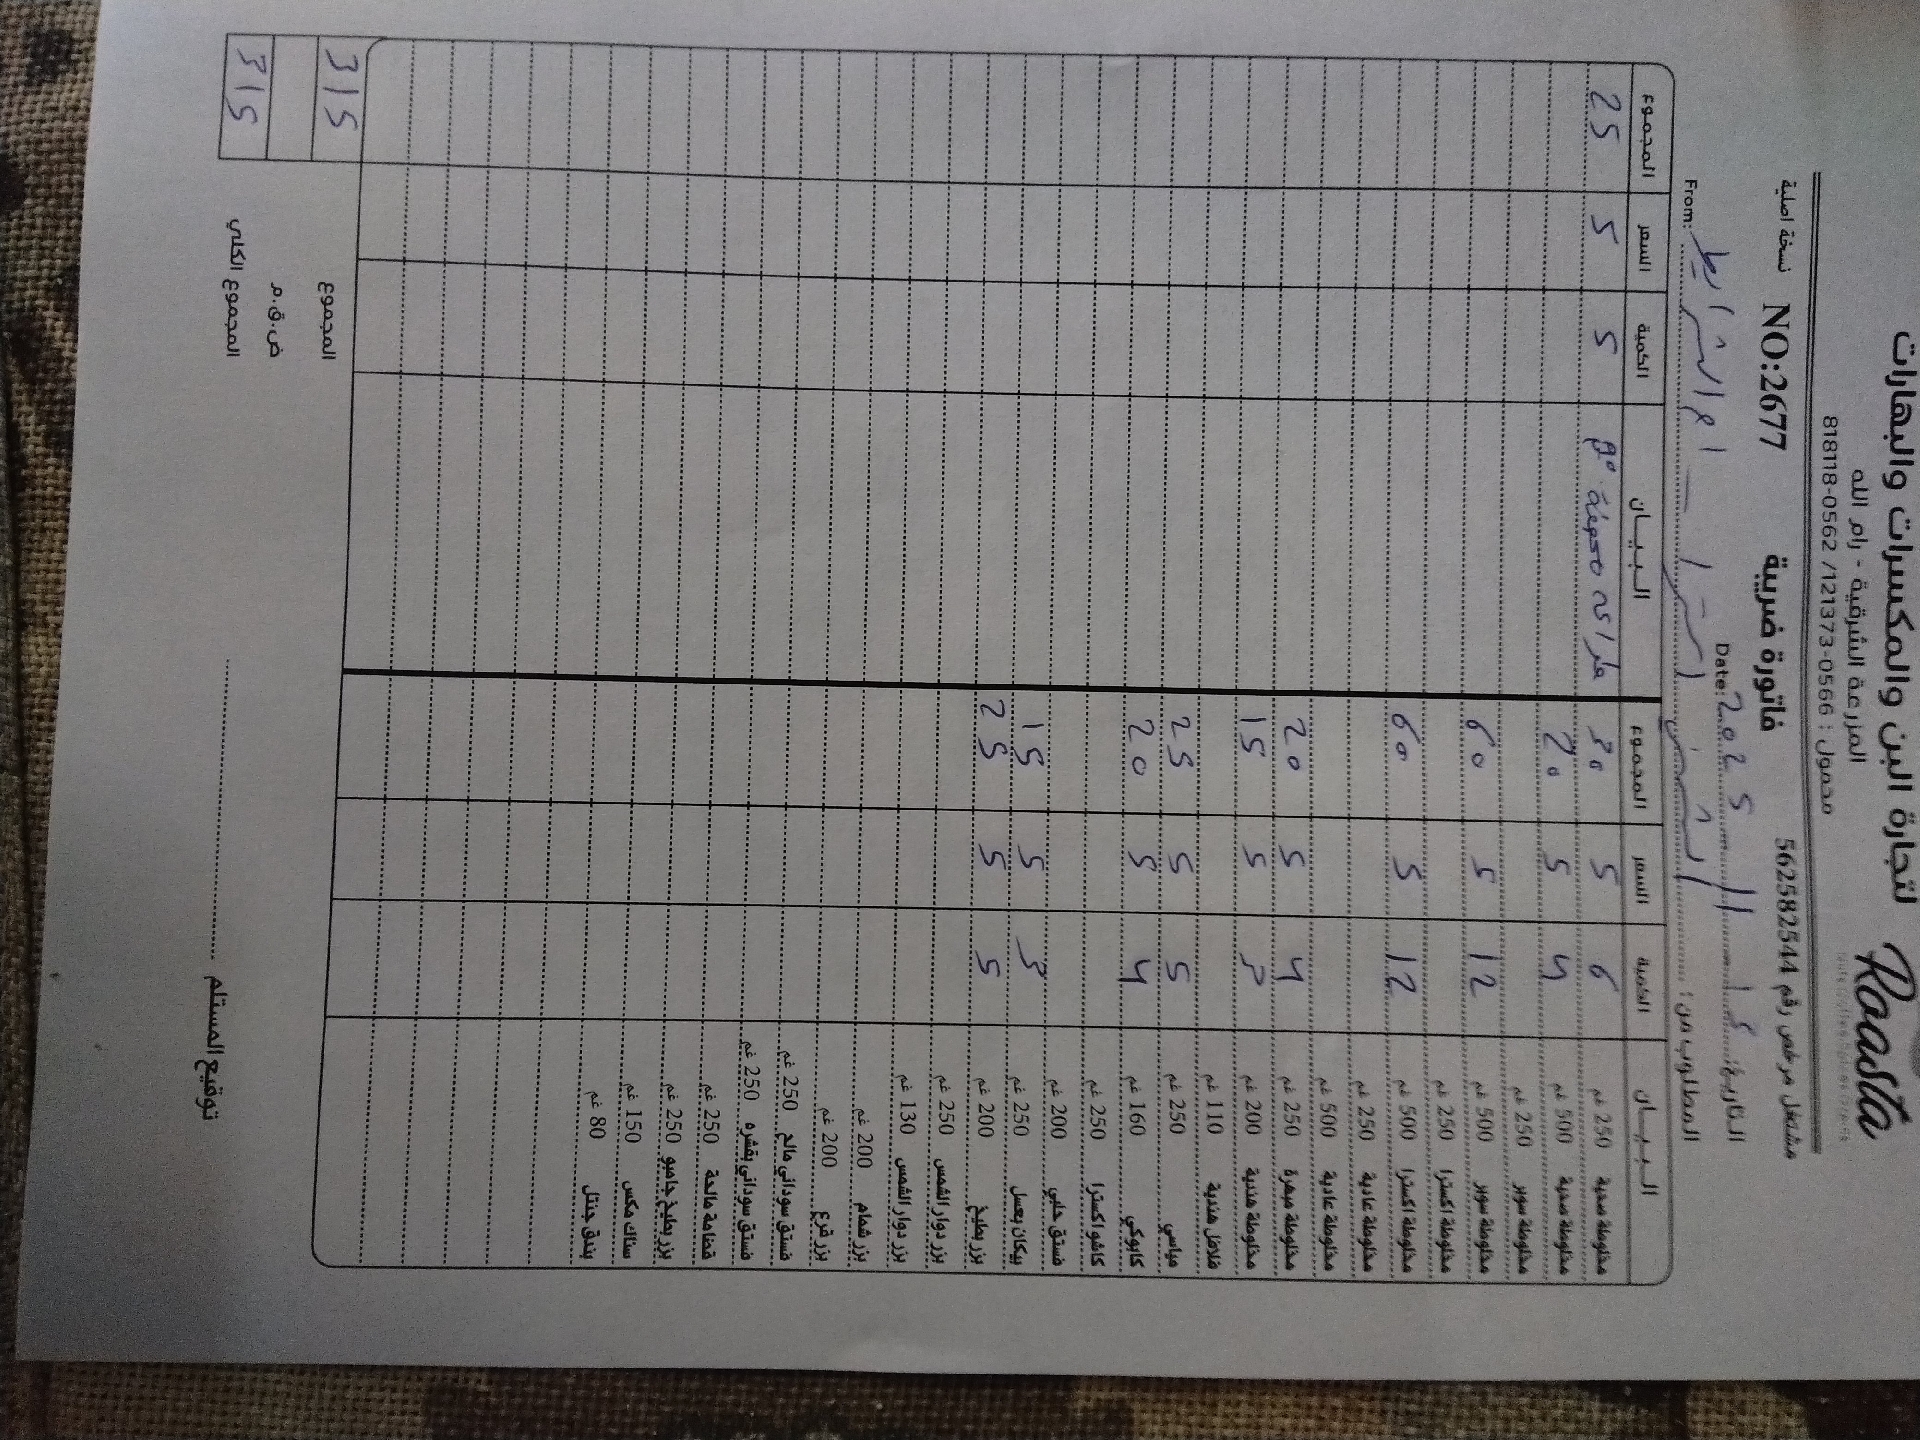 Roasta لتجارة البن والمكسرات والبهارات
المزرعة الشرقية - رام الله
محمول : 0566-121373/ 0562-818118
مشتغل مرخص رقم 562582544 فاتورة ضريبية NO:2677 نسخة اصلية
التاريخ: Date: 2025
المطلوب من: From:
البيـــان الكمية السعر المجموع البيـــان الكمية السعر المجموع
مخلوطة صحية 250 غم 6 5 30 5 5 25
مخلوطة صحية 500 غم 4 5 20
مخلوطة سوبر 250 غم
مخلوطة سوبر 500 غم 12 5 60
مخلوطة اكسترا 250 غم
مخلوطة اكسترا 500 غم 12 5 60
مخلوطة عادية 250 غم
مخلوطة عادية 500 غم
مخلوطة مبهرة 250 غم 4 5 20
مخلوطة هندية 200 غم 3 5 15
فلافل هندية 110 غم
مياسي 250 غم 5 5 25
كابوكي 160 غم 4 5 20
كاشو اكسترا 250 غم
فستق حلبي 200 غم
بيكان بعسل 250 غم 3 5 15
بزر بطيخ 200 غم 5 5 25
بزر دوار الشمس 250 غم
بزر دوار الشمس 130 غم
بزر شمام 200 غم
بزر قرع 200 غم
فستق سوداني مالح 250 غم
فستق سوداني بقشره 250 غم
قضامة مالحة 250 غم
بزر بطيخ جامبو 250 غم
سناك مكس 150 غم
بندق جنتل 80 غم
المجموع 315
ض.ق.م
المجموع الكلي 315
توقيع المستلم